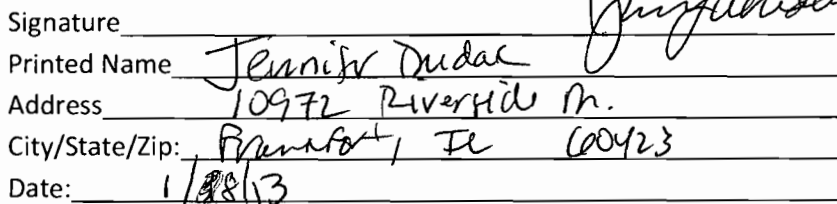 Signature
Printed Name Jennifer Dudac
Address 10972 Riverside Dr.
City/State/Zip: Frankfort, IL 60423
Date: 1/28/13